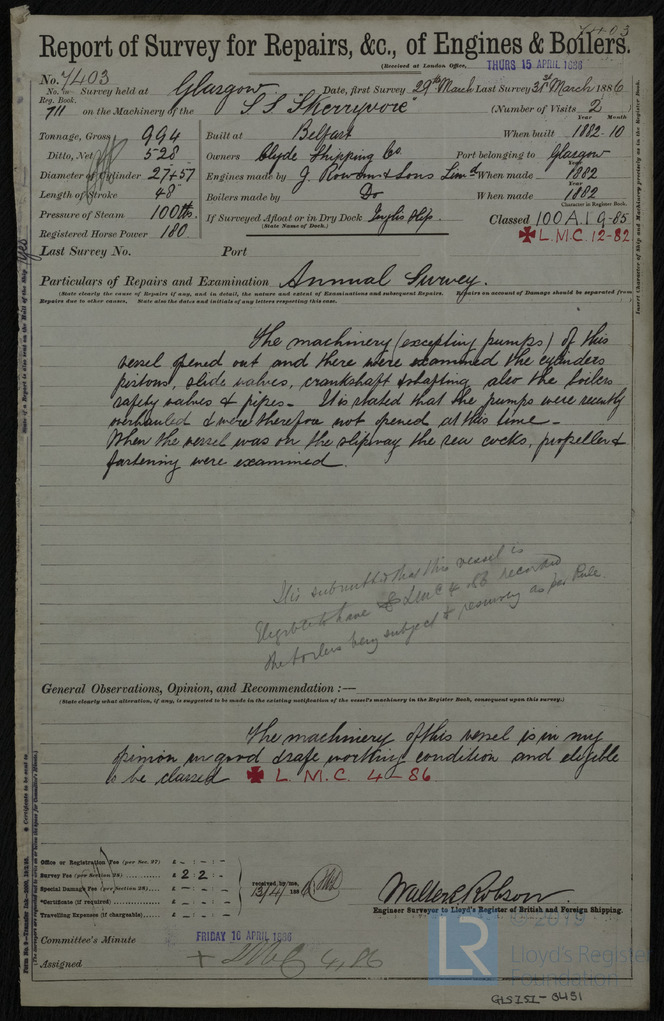 7403
Report of Survey for Repairs, &c., of Engines & Boilers.
(Received at London Office, THURS 15 APRIL 1886
No. 7403
No. in Survey held at Glasgow Date, first Survey 29th March Last Survey 31st March 1886
Reg. Book.
711 on the Machinery of the S.S. "Skerryvore" (Number of Visits 2
Year Month
Tonnage, Gross 994 Built at Belfast When built 1882-10
Ditto, Net 528 Owners Clyde Shipping Co. Port belonging to Glasgow
Diameter of Cylinder 27+57 Engines made by J. Rowan & Sons Limd When made 1882
Length of Stroke 48" Boilers made by Do When made 1882
Pressure of Steam 100 lbs. If Surveyed Afloat or in Dry Dock Inglis Slip. Classed 100 A.1 9-85
(State Name of Dock.)
Character in Register Book.
Registered Horse Power 180 ✠ L.M.C. 12-82
Last Survey No. Port
Particulars of Repairs and Examination Annual Survey.
(State clearly the cause of Repairs if any, and in detail, the nature and extent of Examinations and subsequent Repairs. Repairs on account of Damage should be separated from
Repairs due to other causes. State also the dates and initials of any letters respecting this case.
The machinery (excepting pumps) of this
vessel opened out and there were examined the cylinders
pistons, slide valves, crankshaft & shafting also the boilers
safety valves & pipes - It is stated that the pumps were recently
overhauled & were therefore not opened at this time -
When the vessel was on the slipway the sea cocks, propeller &
fastening were examined.
It is submitted that this vessel is
eligible to have LMC 4.86 recorded
the boilers being subject to resurvey as per Rule.
General Observations, Opinion, and Recommendation :—
(State clearly what alteration, if any, is suggested to be made in the existing notification of the vessel's machinery in the Register Book, consequent upon this survey.)
The machinery of this vessel is in my
opinion in good & safe working condition and eligible
to be classed ✠ L. M. C. 4-86
Office or Registration Fee (per Sec. 27) £ - : - : -
Survey Fee (per Section 28) £ 2 : 2 : -
Special Damage Fee (per Section 28) £ - : - : -
*Certificate (if required) £ - : - : -
Travelling Expenses (if chargeable) £ - : - : -
received by me,
13/4/1886
Walter C. Robson.
Engineer Surveyor to Lloyd's Register of British and Foreign Shipping.
Committee's Minute FRIDAY 16 APRIL 1886
Assigned + LMC 4,86
© 2019
LR
Lloyd's Register
Foundation
GLS151-8451
Insert Character of Ship and Machinery precisely as in the Register Book.
State if a Report is also sent on the Hull of the Ship. Yes
* Certificate to be sent to